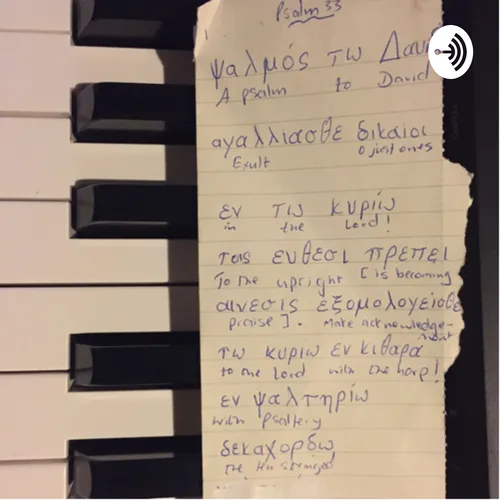 Psalm 33
ψαλμός τω Δαυιδ
A psalm to David
αγαλλιασθε δικαιοι
Exult O just ones
εν τω κυρίω
in the Lord!
τοις ευθεσι πρεπει
To the upright [ is becoming
αινεσις εξομολογείσθε
praise ]. Make acknowledge-
ment
τω κυριω εν κιθαρα
to the Lord with the harp!
εν ψαλτηρίω
with psaltery
δεκαχορδω
the ten stringed